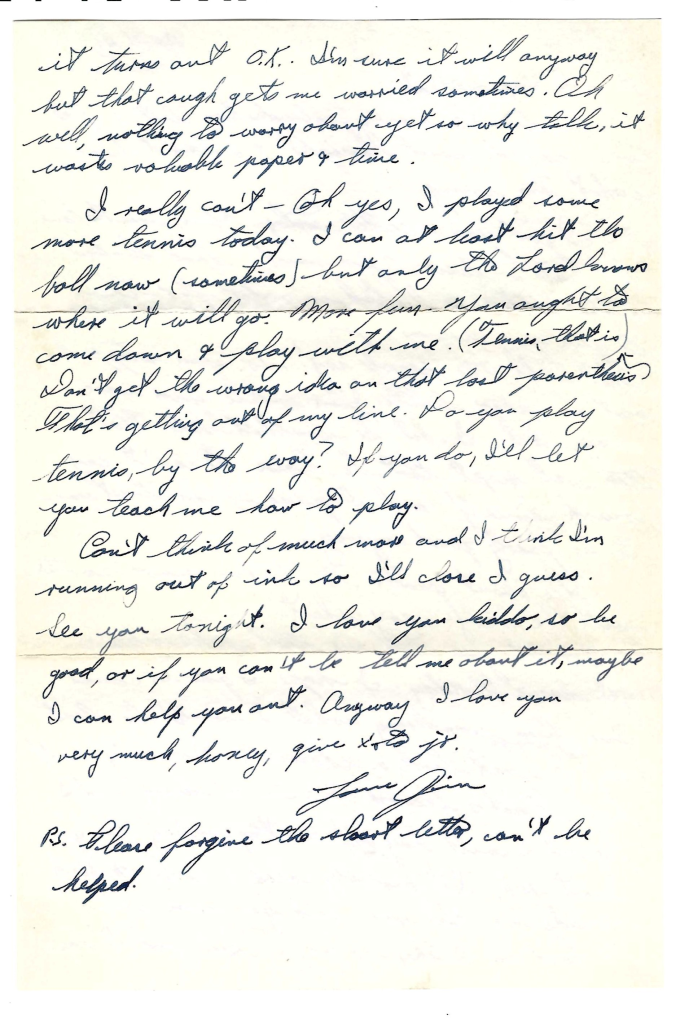 it turns out O.K.. I'm sure it will anyway
but that cough gets me worried sometimes. Oh
well, nothing to worry about yet so why talk, it
wastes valuable paper & time.
I really can't - Oh yes, I played some
more tennis today. I can at least hit the
ball now (sometimes) but only the Lord knows
where it will go. More fun. You ought to
come down & play with me. (Tennis, that is)
Don't get the wrong idea on that last parenthesis)
That's getting out of my line. Do you play
tennis, by the way? If you do, I'll let
you teach me how to play.
Can't think of much more and I think I'm
running out of ink so I'll close I guess.
See you tonight. I love you kiddo, so be
good, or if you can't be tell me about it, maybe
I can help you out. Anyway I love you
very much, honey, give to jr.
Love Jim
P.S. Please forgive the short letter, can't be
helped.